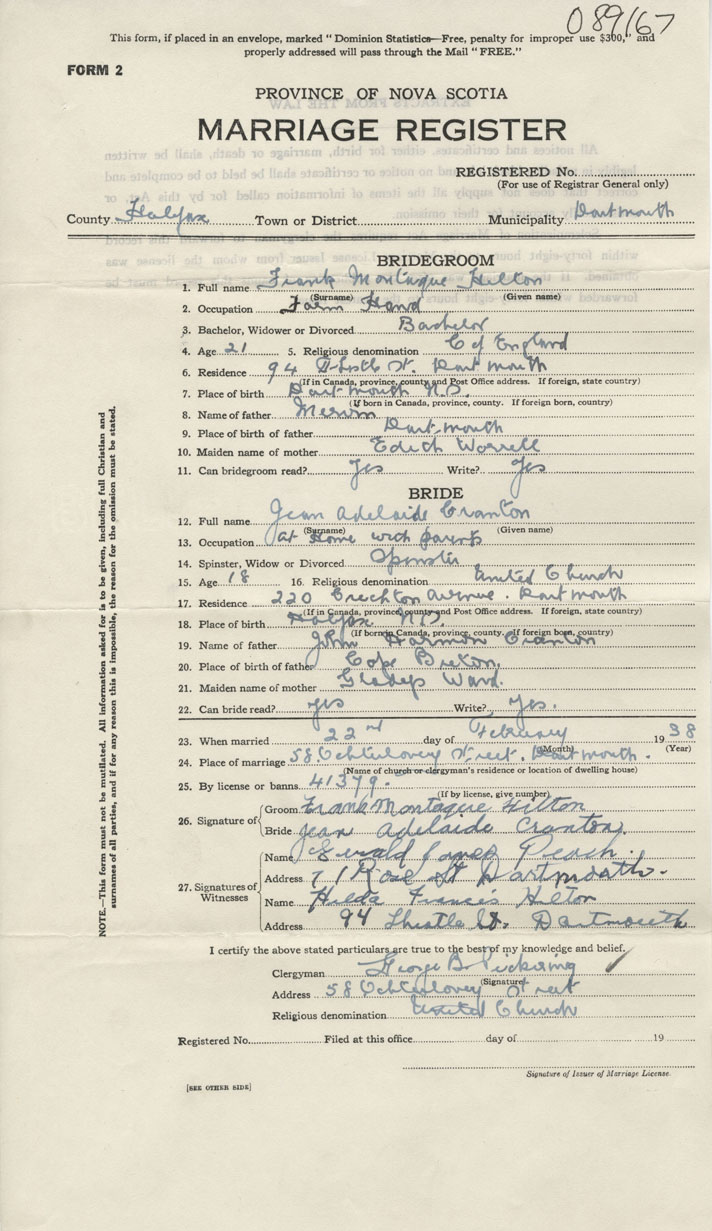 089167
This form, if placed in an envelope, marked "Dominion Statistics—Free, penalty for improper use $300," and
properly addressed will pass through the Mail "FREE."
FORM 2
PROVINCE OF NOVA SCOTIA
MARRIAGE REGISTER
REGISTERED No.
(For use of Registrar General only)
County Halifax Town or District Municipality Dartmouth
BRIDEGROOM
1. Full name Frank Montague Hilton
(Surname) (Given name)
2. Occupation Farm Hand
3. Bachelor, Widower or Divorced Bachelor
4. Age 21 5. Religious denomination C of England
6. Residence 94 Thistle St. Dartmouth
(If in Canada, province, county and Post Office address. If foreign, state country)
7. Place of birth Dartmouth N.S.
(If born in Canada, province, county. If foreign born, country)
8. Name of father
9. Place of birth of father Dartmouth
10. Maiden name of mother Edith Worrell
11. Can bridegroom read? Yes Write? Yes
BRIDE
12. Full name Jean Adelaide Cranton
(Surname) (Given name)
13. Occupation at Home with parents
14. Spinster, Widow or Divorced Spinster
15. Age 18 16. Religious denomination United Church
17. Residence 220 Crechton Avenue. Dartmouth
(If in Canada, province, county and Post Office address. If foreign, state country)
18. Place of birth Halifax N.S.
(If born in Canada, province, county. If foreign born, country)
19. Name of father John Harmon Cranton
20. Place of birth of father Cape Breton.
21. Maiden name of mother Gladys Ward.
22. Can bride read? yes Write? Yes.
23. When married 22nd day of February 1938
(Month) (Year)
24. Place of marriage 58 Ochterlovey Street. Dartmouth.
(Name of church or clergyman's residence or location of dwelling house)
25. By license or banns 41379.
(If by license, give number)
26. Signature of Groom Frank Montague Hilton
Bride Jean Adelaide Cranton.
27. Signatures of Witnesses Name Gerald James Peach.
Address 71 Rose St Dartmouth.
Name Hilda Francis Hilton
Address 94 Thistle St. Dartmouth
I certify the above stated particulars are true to the best of my knowledge and belief.
Clergyman George B. Pickering
(Signature)
Address 58 Ochterlovey Street
Religious denomination United Church
Registered No. Filed at this office day of 19
Signature of Issuer of Marriage License.
[SEE OTHER SIDE]
NOTE.—This form must not be mutilated. All information asked for is to be given, including full Christian and
surnames of all parties, and if for any reason this is impossible, the reason for the omission must be stated.